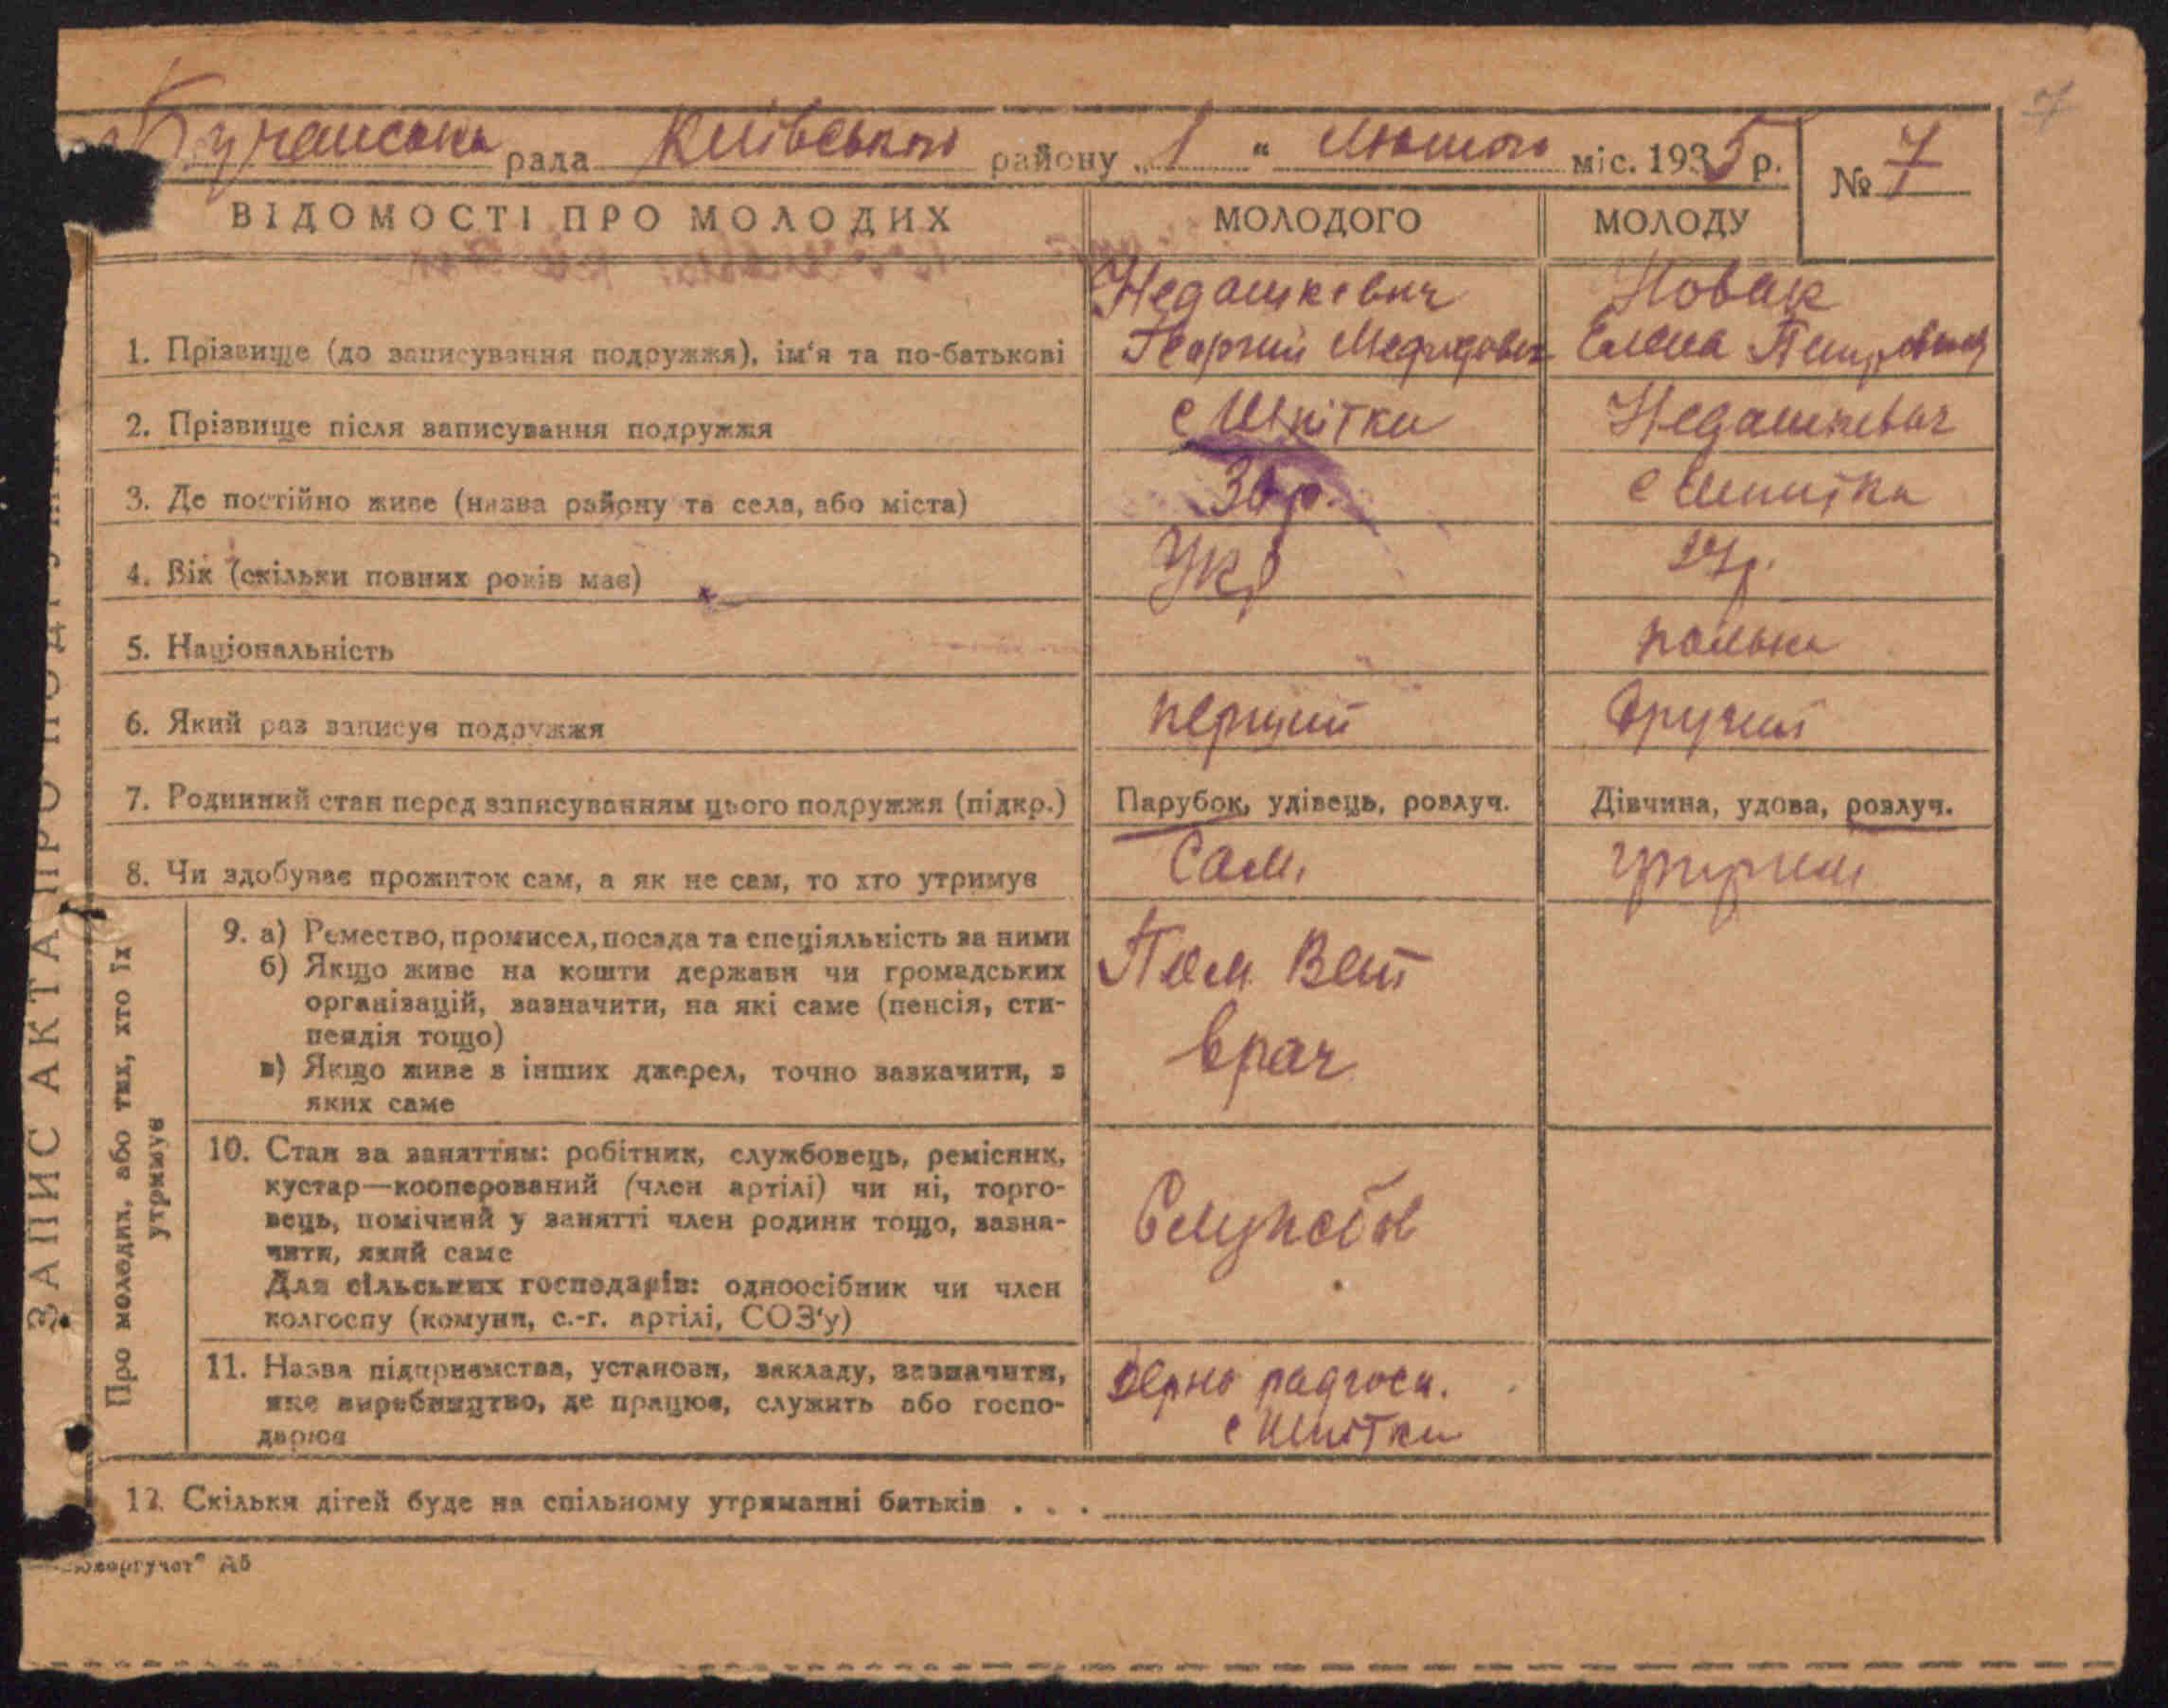 Бучанська рада Київського району „ 1 “ лютого міс. 1935 р.
№ 7
7
ВІДОМОСТІ ПРО МОЛОДИХ
МОЛОДОГО
МОЛОДУ
1. Прізвище (до записування подружжя), ім'я та по-батькові
Недашкевич
Георгий
Новак
Елена
2. Прізвище після записування подружжя
с Шпітки
Недашкевич
3. Де постійно живе (назва району та села, або міста)
30 р.
с Шпитки
4. Вік (скільки повних років має)
Укр
27 р.
5. Національність
полька
6. Який раз записує подружжя
перший
другий
7. Родинний стан перед записуванням цього подружжя (підкр.)
Парубок, удівець, розлуч.
Дівчина, удова, розлуч.
8. Чи здобуває прожиток сам, а як не сам, то хто утримує
Сам.
ЗАПИС АКТА ПРО
Про молодих, або тих, хто їх
утримує
9. а) Ремество, промисел, посада та спеціяльність за ними
б) Якщо живе на кошти держави чи громадських
організацій, зазначити, на які саме (пенсія, сти-
пендія тощо)
в) Якщо живе з інших джерел, точно зазначити, з
яких саме
Пом Вет
врач
10. Стан за заняттям: робітник, службовець, ремісник,
кустар—кооперований (член артілі) чи ні, торго-
вець, помічний у занятті член родини тощо, зазна-
чити, який саме
Для сільських господарів: одноосібник чи член
колгоспу (комуни, с.-г. артілі, СОЗ'у)
Службов
11. Назва підприємства, установи, закладу, зазначити,
яке виробництво, де працює, служить або госпо-
дарює
Зерно радгосп.
с Шпітки
12. Скільки дітей буде на спільному утриманні батьків . . .